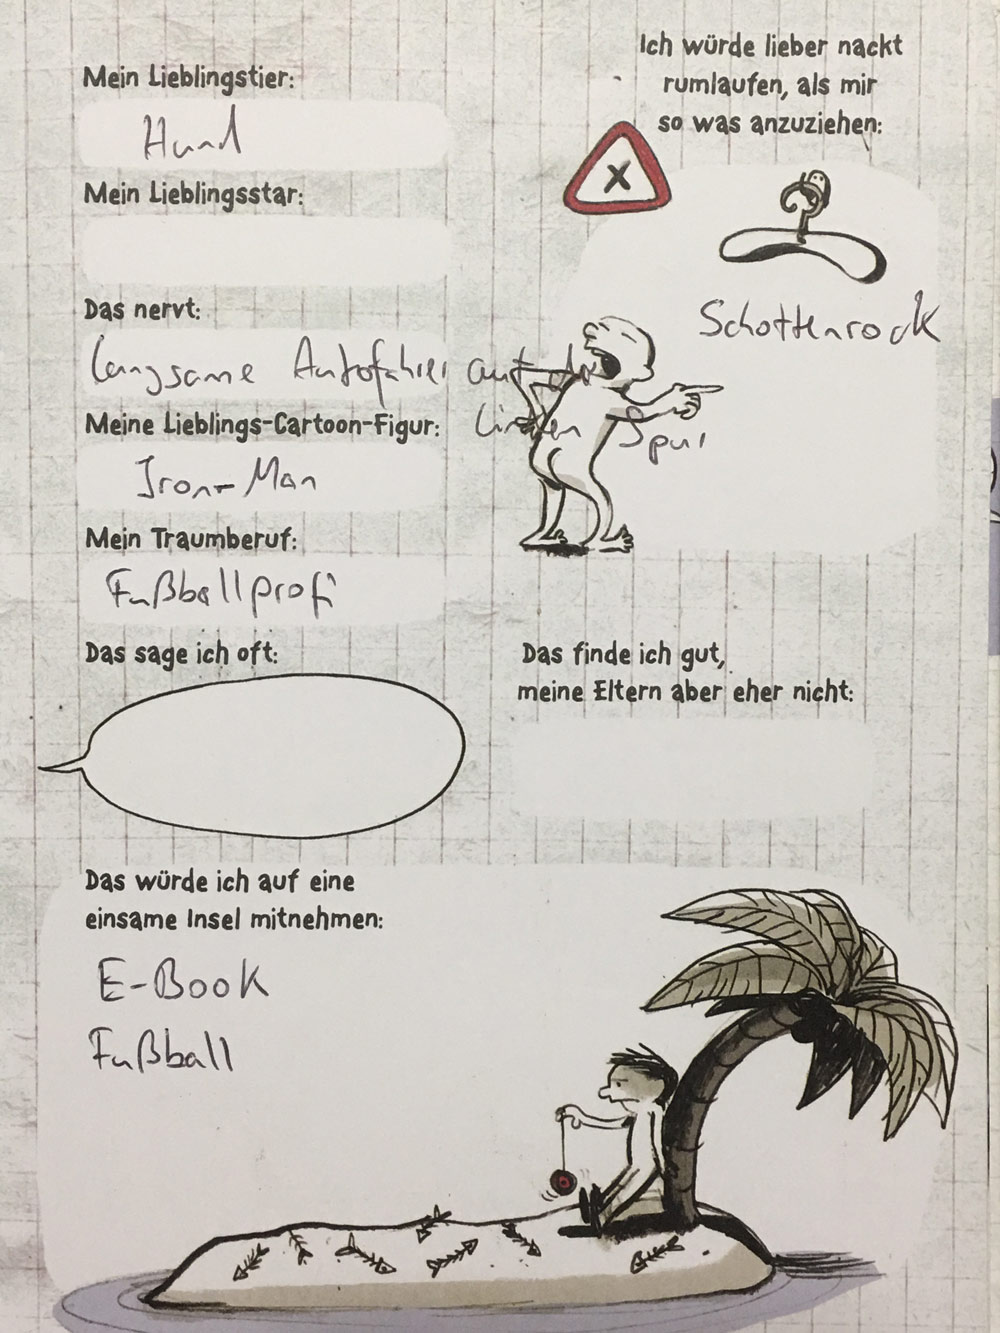 Mein Lieblingstier:
Hund
Mein Lieblingsstar:
Das nervt:
langsame Autofahrer auf der
linken Spur
Meine Lieblings-Cartoon-Figur:
Iron-Man
Mein Traumberuf:
Fußballprofi
Das sage ich oft:
Ich würde lieber nackt
rumlaufen, als mir
so was anzuziehen:
X
Schottenrock
Das finde ich gut,
meine Eltern aber eher nicht:
Das würde ich auf eine
einsame Insel mitnehmen:
E-Book
Fußball